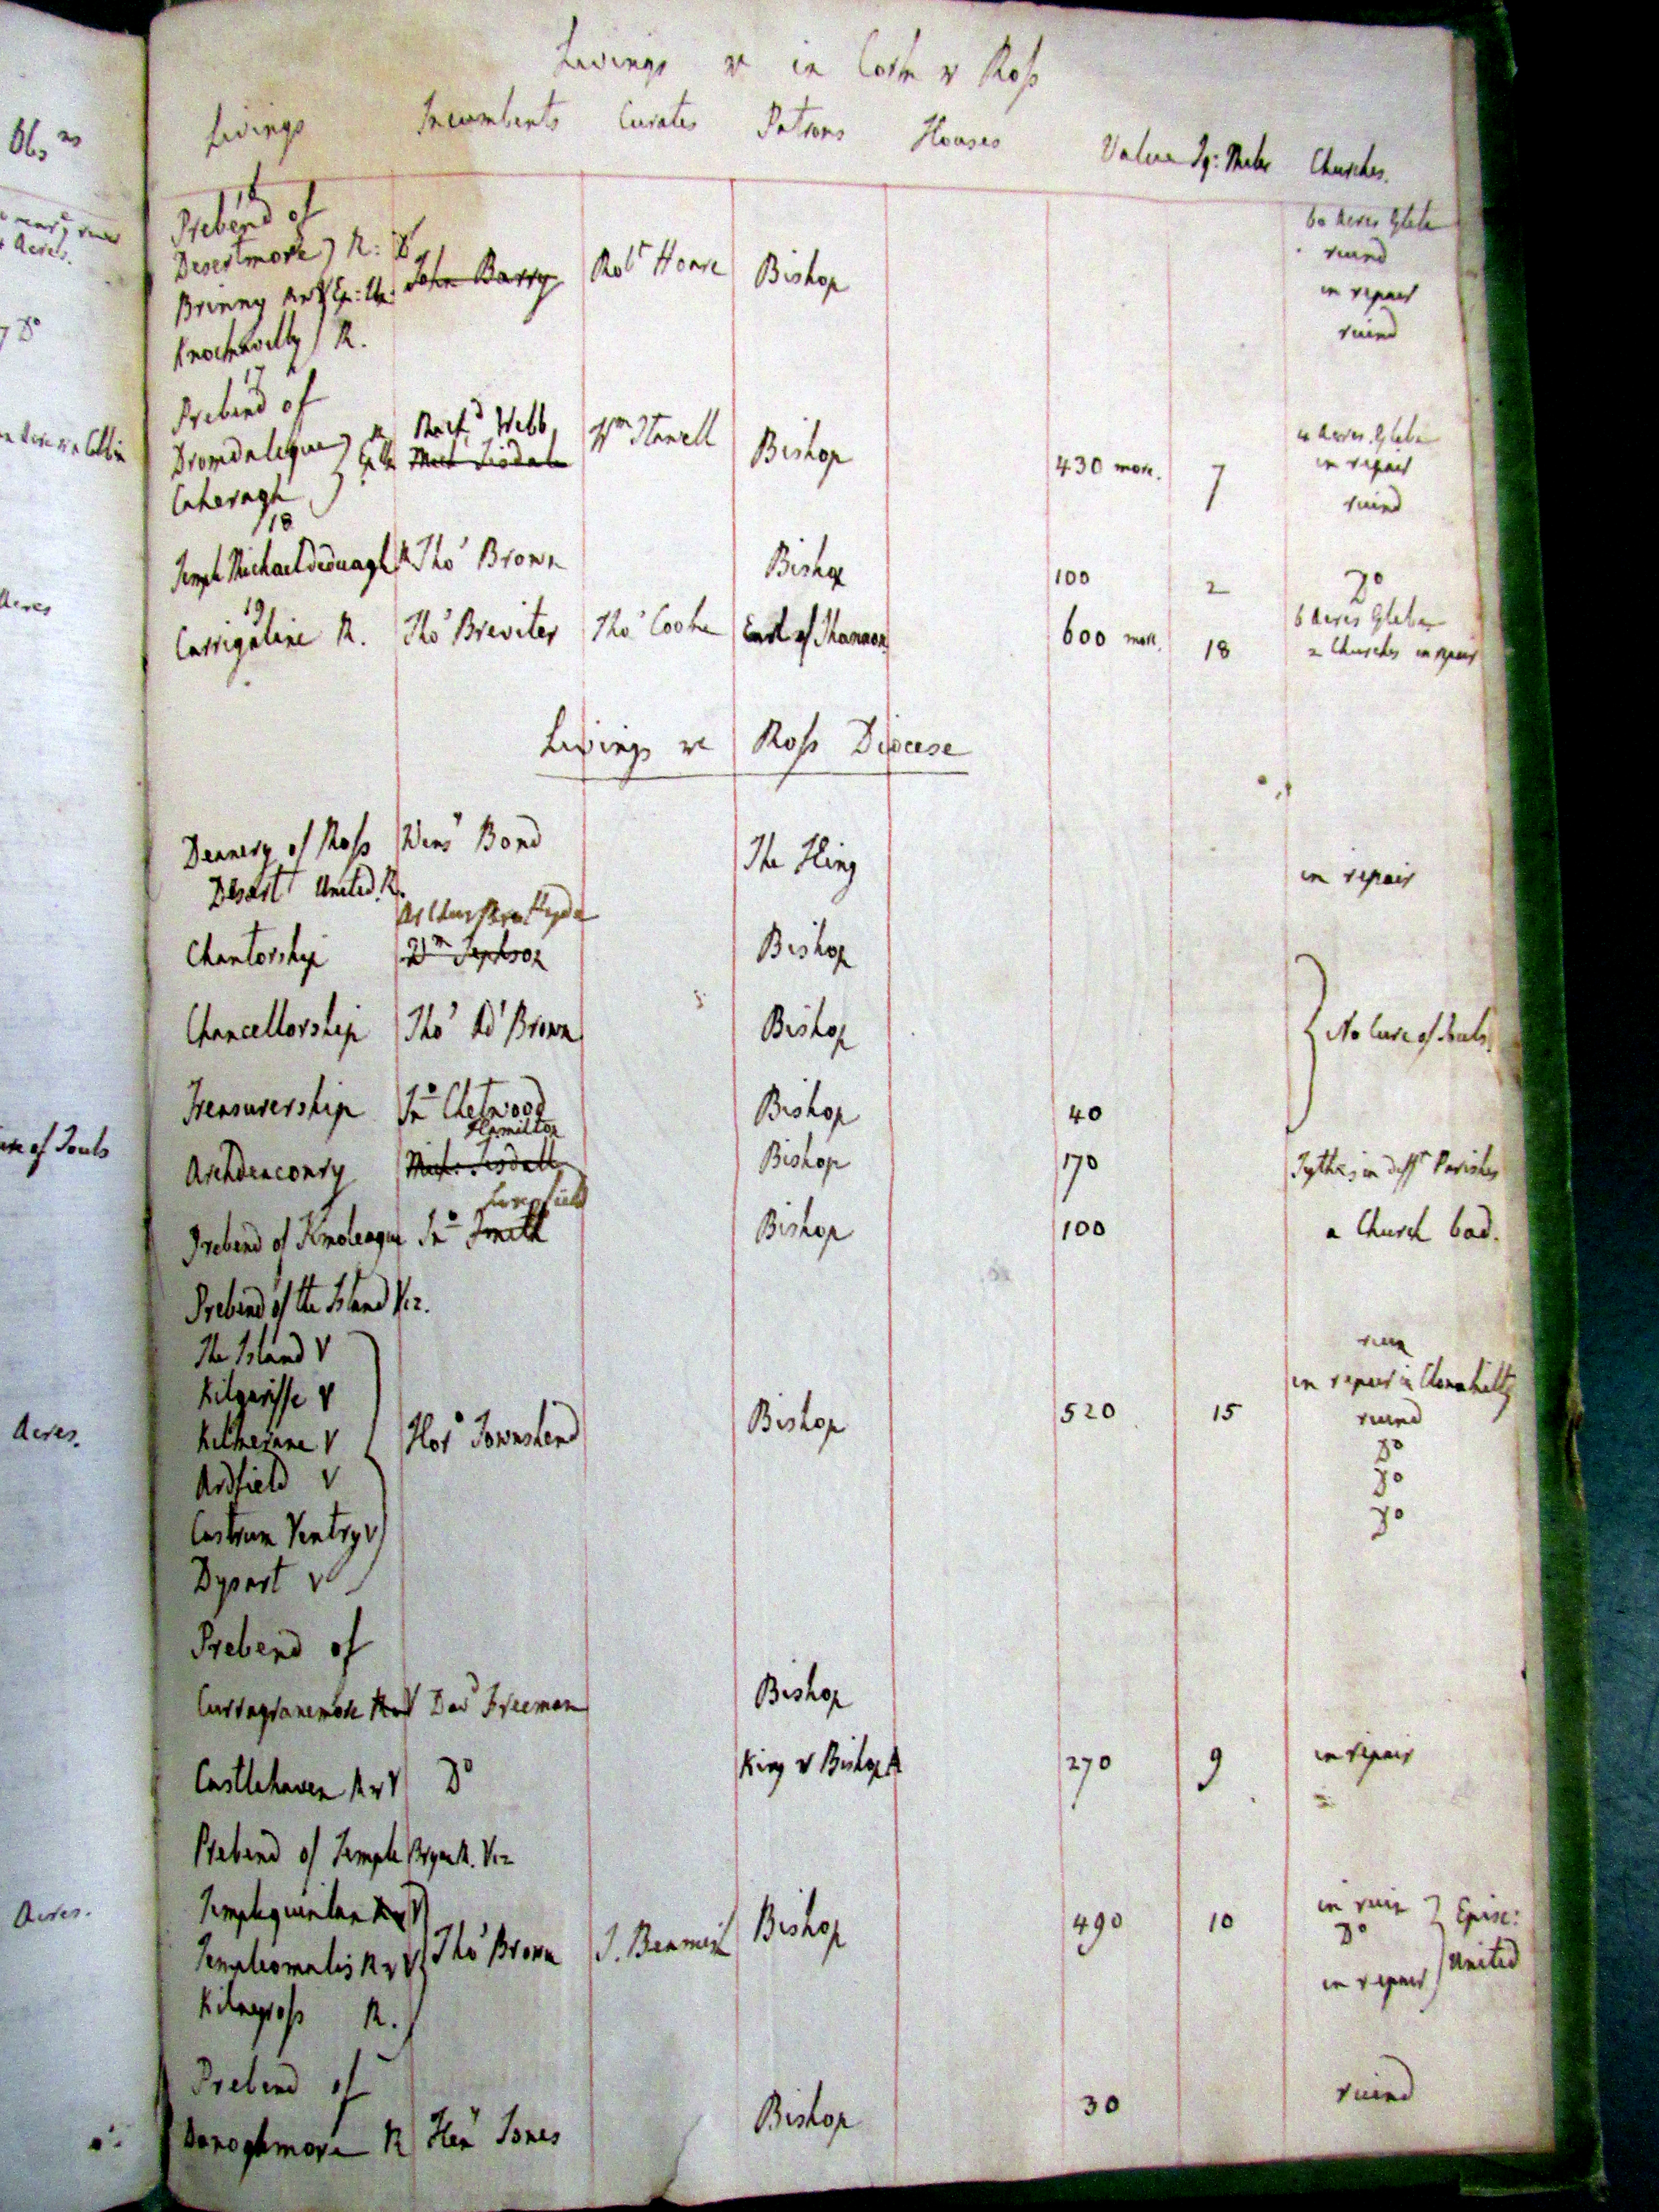 Livings &c in Cork & Ross
Livings Incumbents Curates Patrons Houses Value Sq: Miles Churches.
16
Prebend of 60 Acres Glebe
Desertmore R: Do ruined
Brinny R & V Ep: Un: John Barry Robt Hoare Bishop in repair
Knocknavilly R. ruined
17
Prebend of Richd Webb 4 Acres Glebe
Dromdaleague R Mich Tisdale Wm Stawell Bishop 430 more. 7 in repair
Caheragh ruined
18
Temple Michael Deduagh R Thos Brown Bishop 100 2 Do
19
Carrigaline R. Thos Breviter Thos Cooke Earl of Shannon 600 more. 18 6 Acres Glebe
2 Churches in repair
Livings &c Ross Diocese
Deanery of Ross Wensy Bond The King in repair
Desart United R.
Arthur Hyde
Chantorship Wm Jephson Bishop
Chancellorship Thos Rd Brown Bishop No Cure of Souls.
Treasurership Jno Chetwood Bishop 40
Hamilton
Archdeaconry Mich: Tisdall Bishop 170 Tythes in difft Parishes
Longfield
Prebend of Timoleague Jno Smith Bishop 100 a Church bad.
Prebend of the Island Viz.
The Island V ruin
Kilgariffe V in repair in Clonakilty
Kilkerane V Hoo Townshend Bishop 520 15 ruined
Ardfield V Do
Castrum Ventry V Do
Dysart V Do
Prebend of
Curragranemore R & V Davd Freeman Bishop
Castlehaven R & V Do King & Bishop A 270 9 in repair
Prebend of Temple Bryan R. Viz
Templequinlan R & V in ruin Episc:
Templeomalis R & V Thos Brown J. Beamish Bishop 490 10 Do United
Kilnagross R. in repair
Prebend of
Donoghmore R Heny Jones Bishop 30 ruined
Obsns
Acres.
Do
Acres
Cure of Souls
Acres.
Acres.